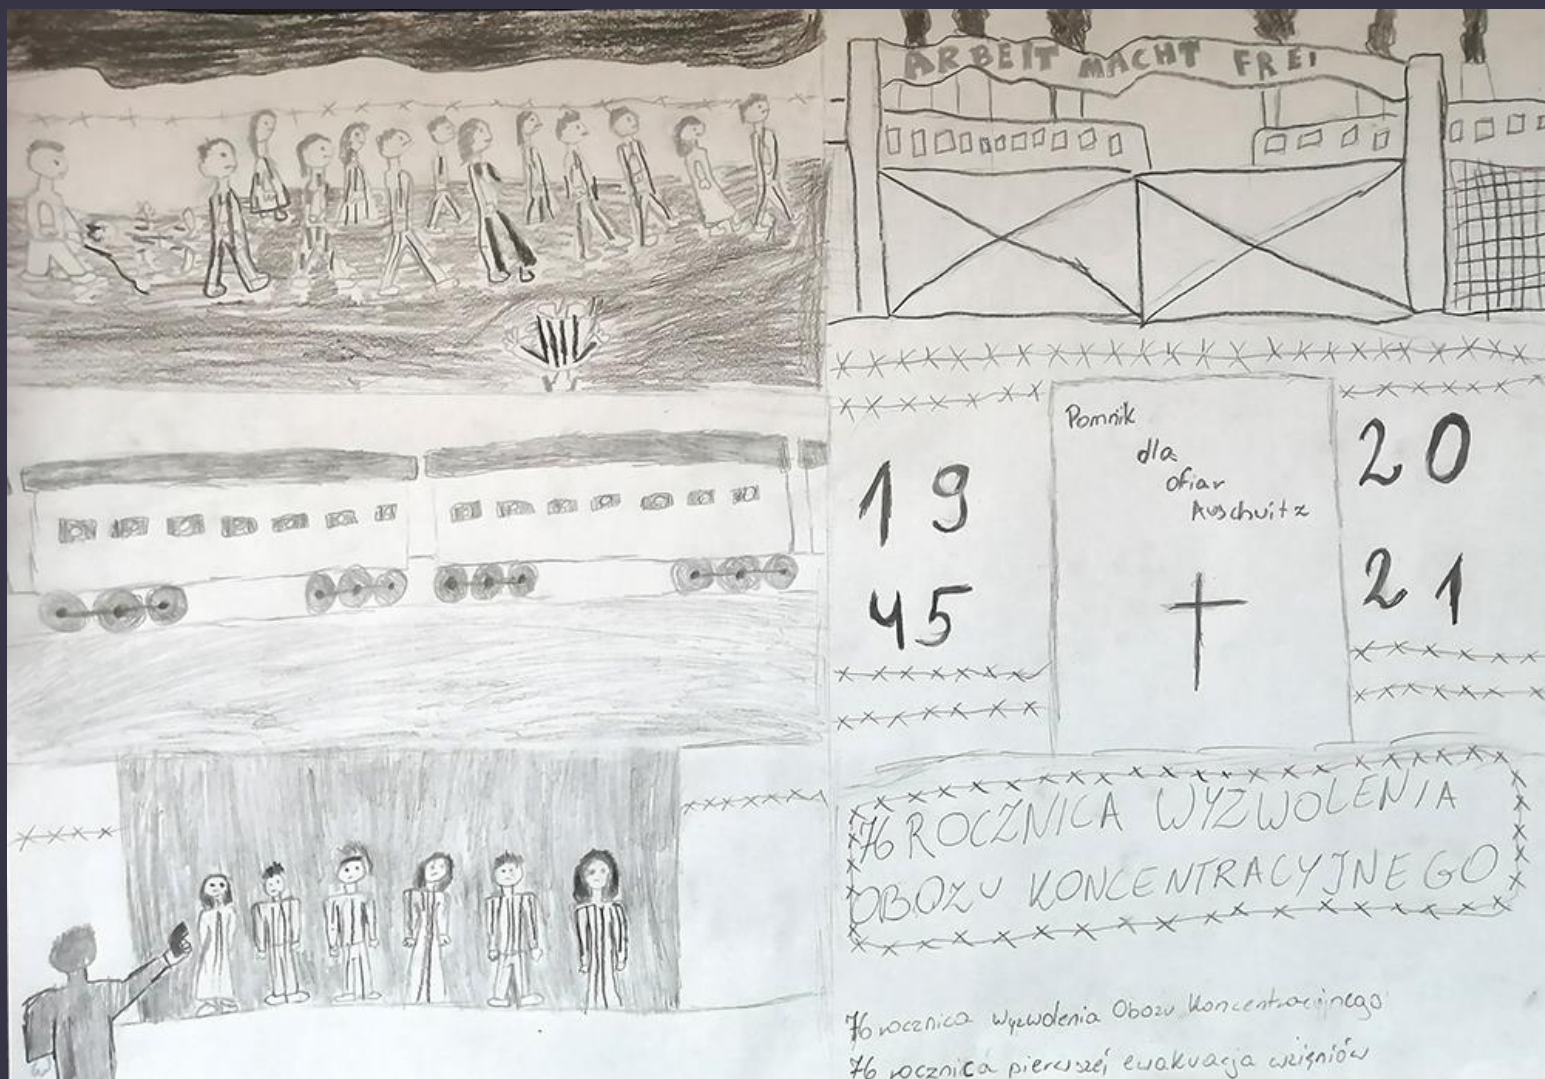 ARBEIT MACHT FREI
Pomnik
dla
ofiar
Auschwitz
19
45
20
21
76 ROCZNICA WYZWOLENIA
OBOZU KONCENTRACYJNEGO
76 rocznica wyzwolenia Obozu Koncentracyjnego
76 rocznica pierwszej ewakuacja więźniów